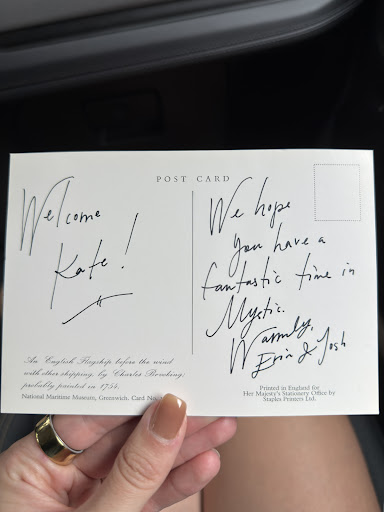 POST CARD
Welcome
Kate!
We hope
you have a
fantastic time in
Mystic.
Warmly,
Erin & Josh
An English Flagship before the wind
with other shipping; by Charles Brooking;
probably painted in 1754.
National Maritime Museum, Greenwich. Card
Printed in England for
Her Majesty's Stationery Office by
Staples Printers Ltd.